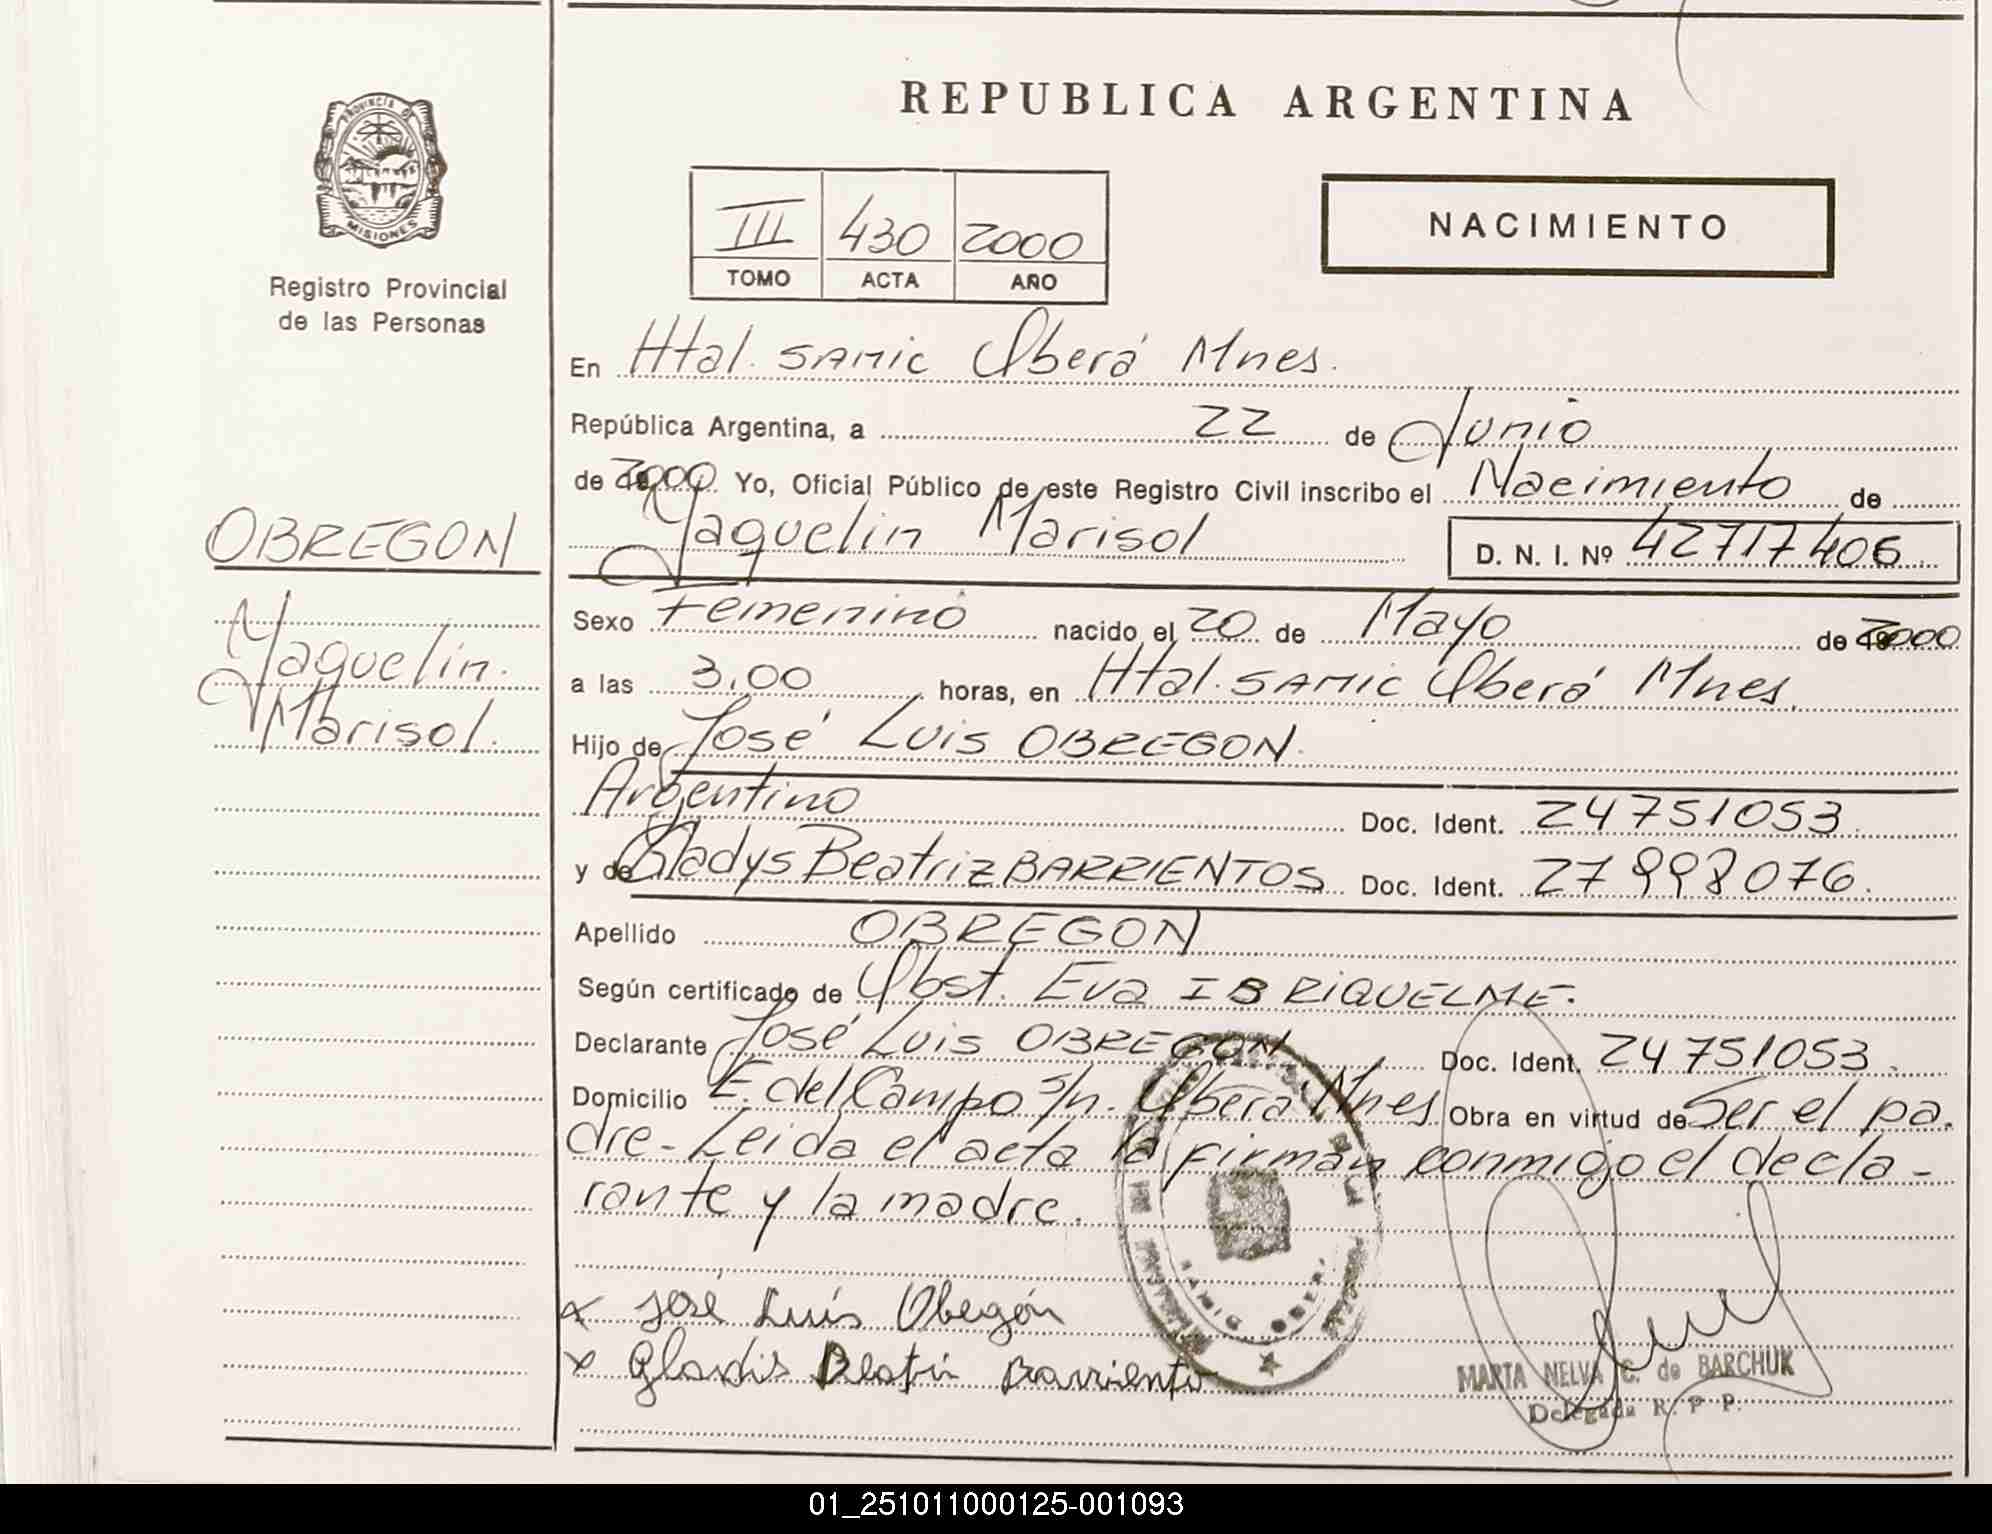 REPUBLICA ARGENTINA
PROVINCIA DE
MISIONES
Registro Provincial
de las Personas
III 430 2000
TOMO ACTA AÑO
NACIMIENTO
OBREGON
Yaquelin.
Marisol.
En Htal. SAMIC Oberá Mnes.
República Argentina, a 22 de Junio
de 2000 Yo, Oficial Público de este Registro Civil inscribo el Nacimiento de
Yaquelin Marisol D. N. I. Nº 42717406
Sexo Femenino nacido el 20 de Mayo de 2000
a las 3,00 horas, en Htal. SAMIC Oberá Mnes.
Hijo de José Luis OBREGON.
Argentino Doc. Ident. 24751053.
y de Gladys Beatriz BARRIENTOS Doc. Ident. 27998076.
Apellido OBREGON
Según certificado de Obst. Eva I B RIQUELME.
Declarante José Luis OBREGON Doc. Ident. 24751053.
Domicilio E. del Campo s/n. Oberá Mnes Obra en virtud de Ser el pa.
dre - Leida el acta la firman conmigo el decla-
rante y la madre.
x José Luís Obegón
x Gladis Barriento
SAMIC OBERA
MARTA NELVA C. de BARCHUK
Delegada R. P. P.
01_251011000125-001093